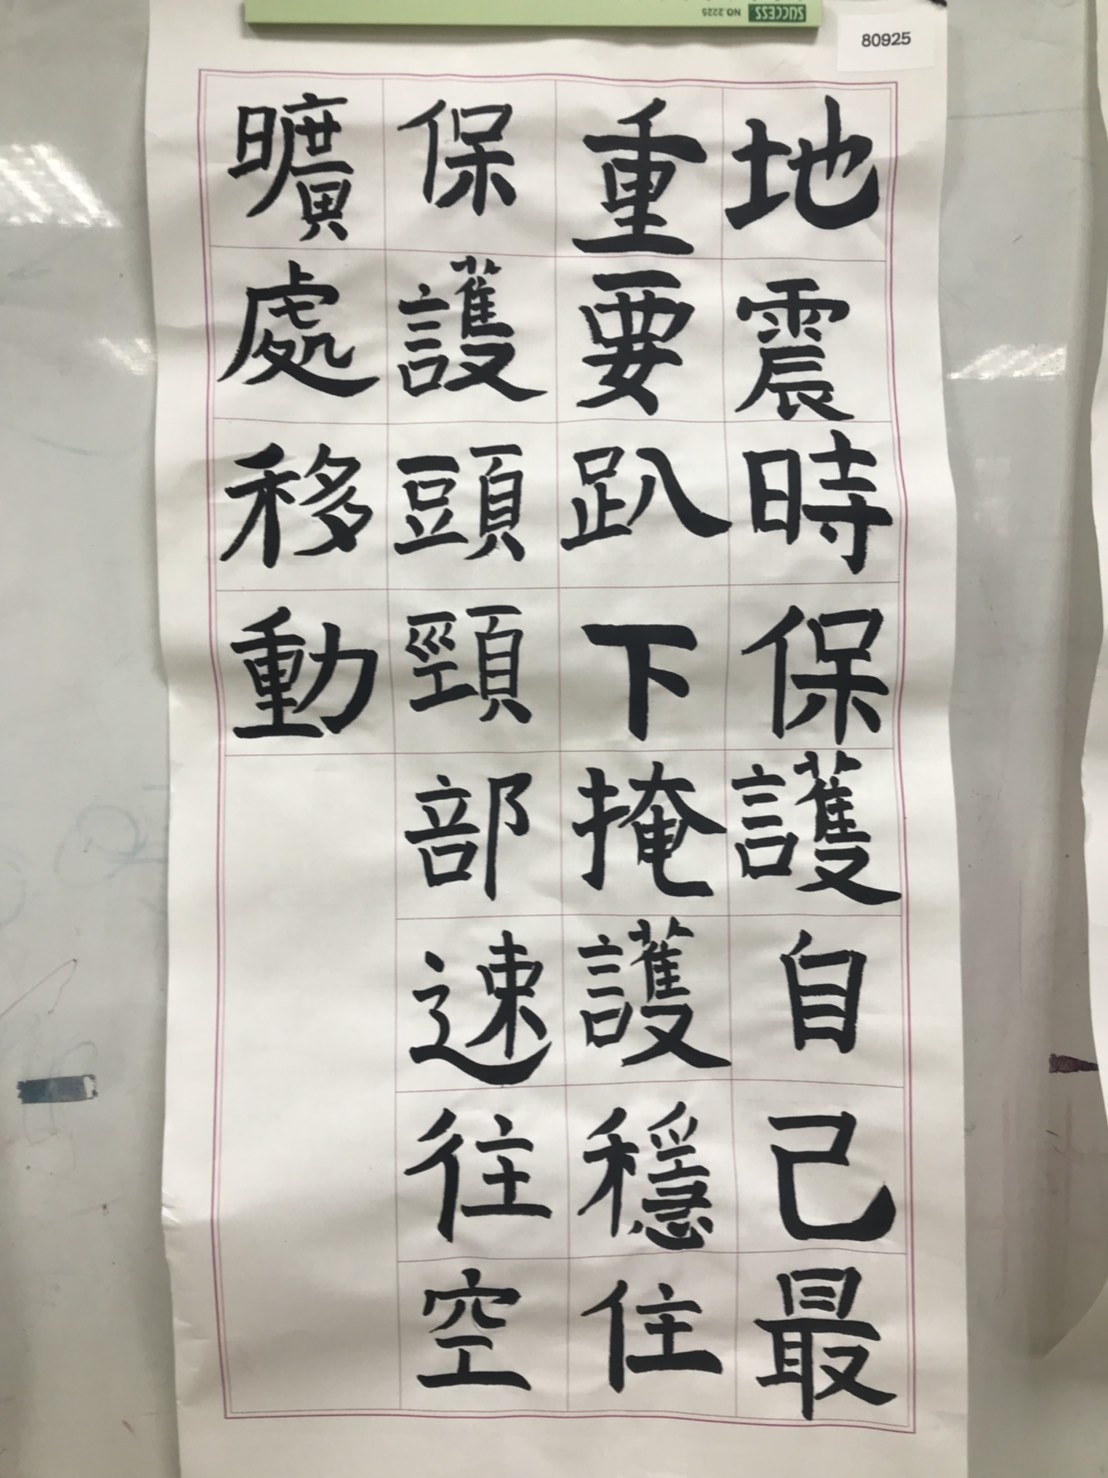 SUCCESS NO.2225
80925
地震時保護自己最
重要趴下掩護穩住
保護頭頸部速往空
曠處移動